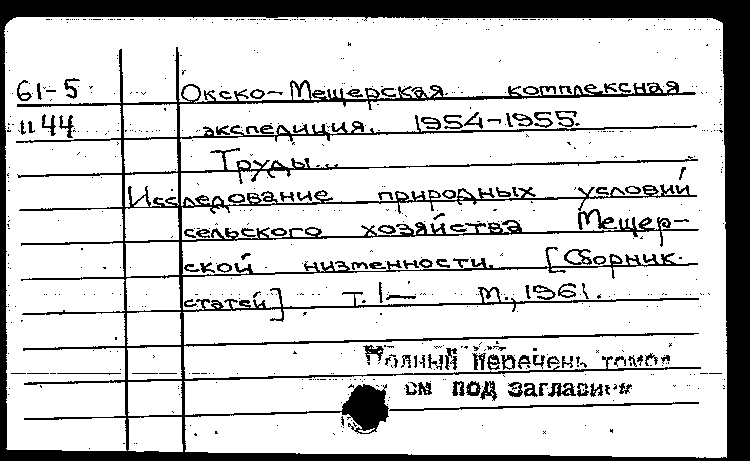 61-5 Окско-Мещерская комплексная
и44 экспедиция. 1954-1955.
Труды...
Исследование природных условий
сельского хозяйства Мещер-
ской низменности. [Сборник
статей] т. 1— М., 1961.
Полный перечень томов
см под заглавием